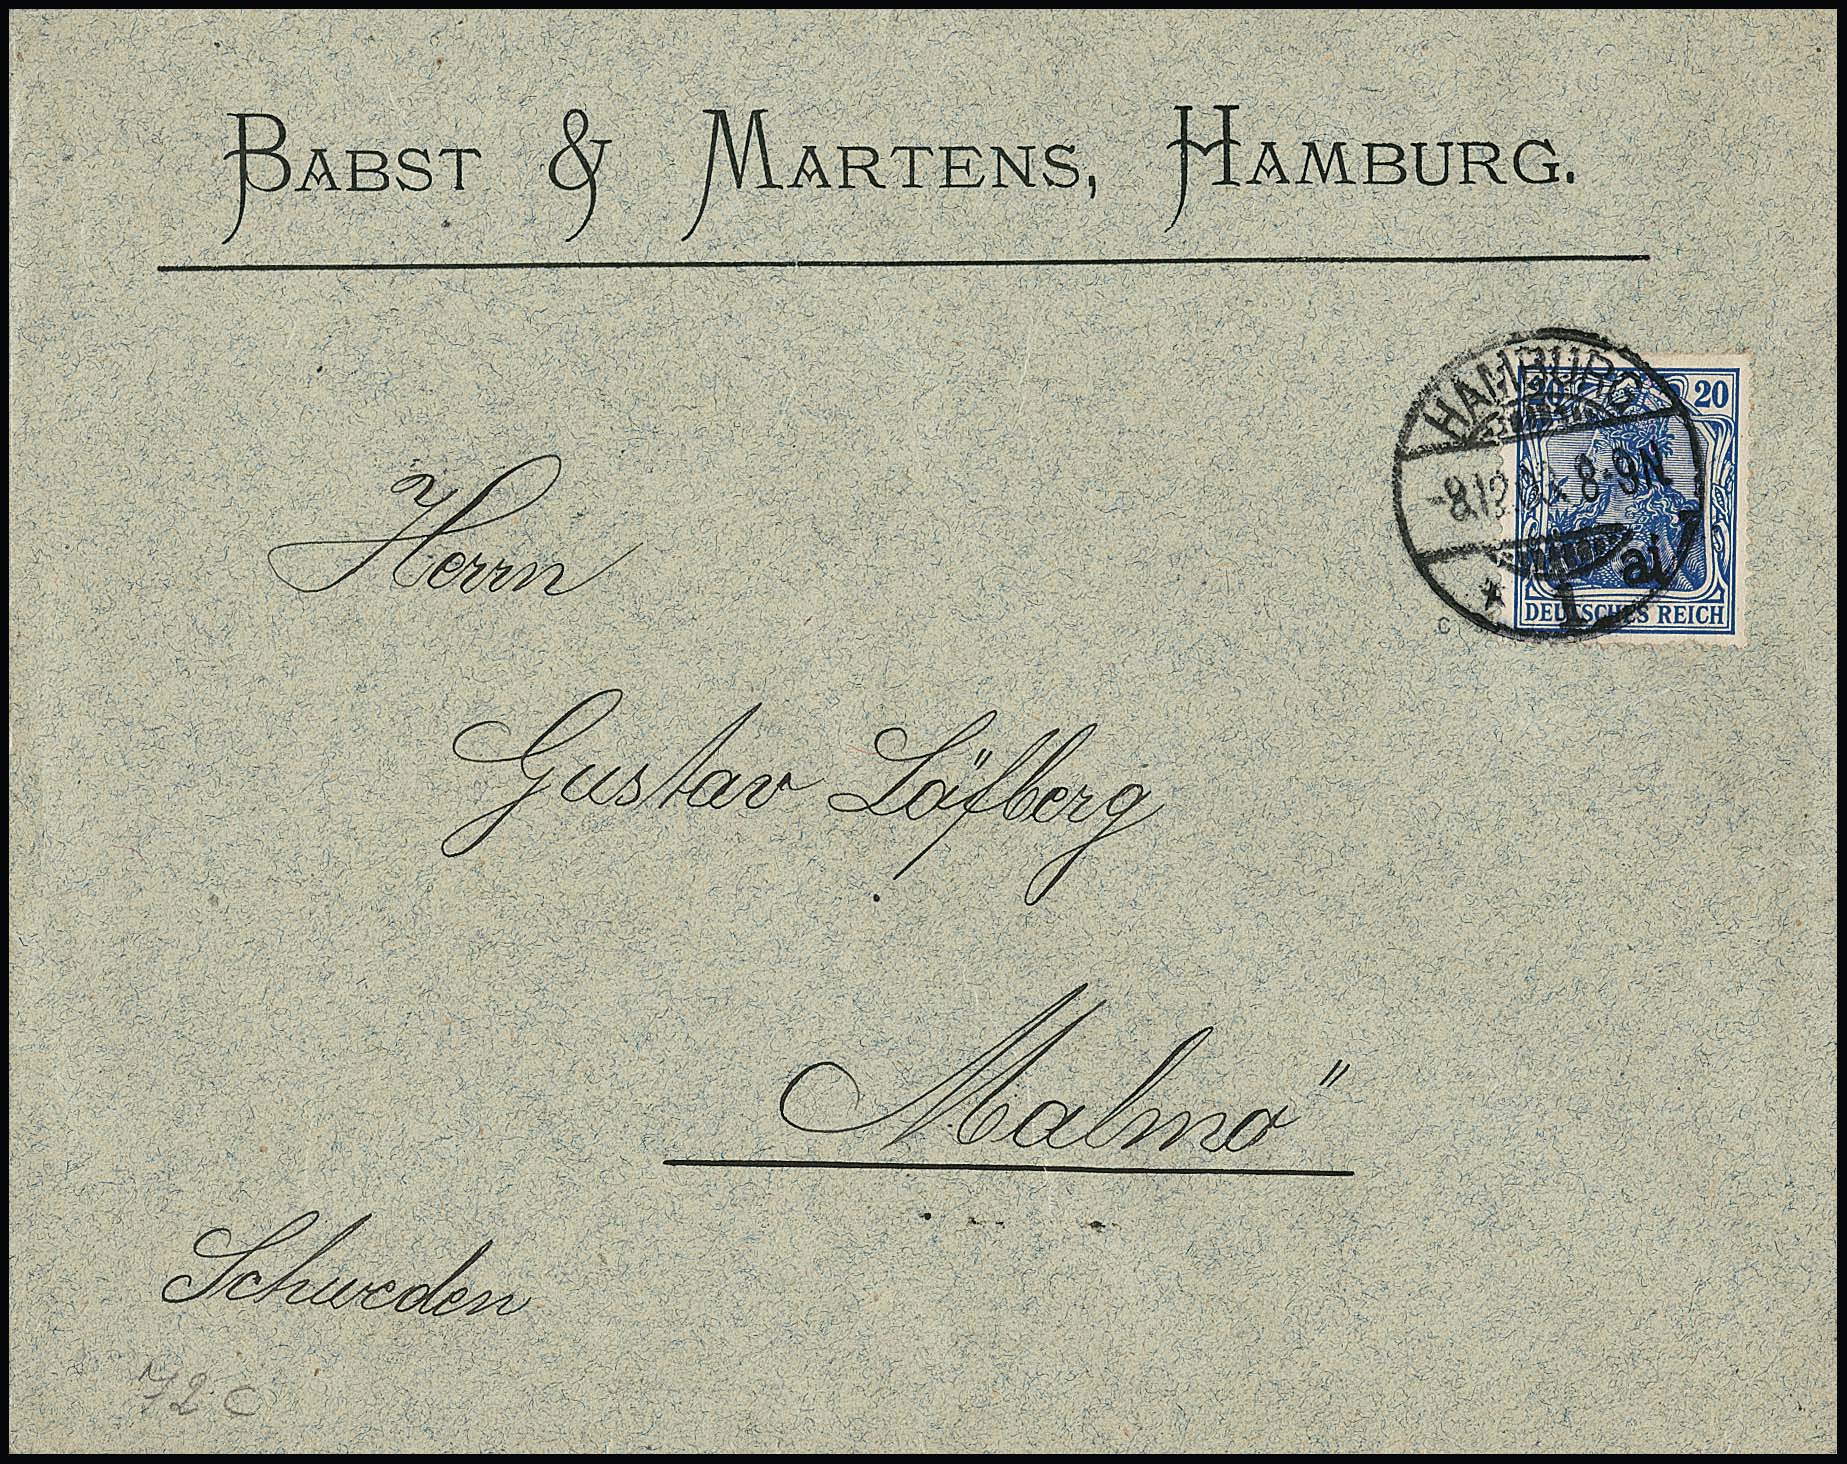 BABST & MARTENS, HAMBURG.
HAMBURG
20 20
8.12. 8-9N
1 ai
DEUTSCHES REICH
Herrn
Gustav Löfberg
Malmö
Schweden
72 c